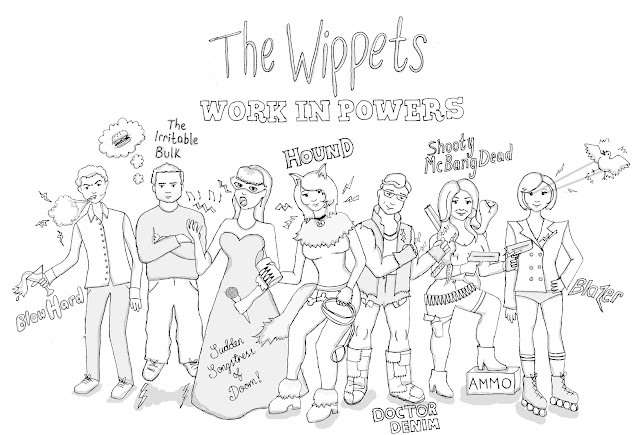 The Wippets
WORK IN POWERS
The
Irritable
Bulk
HOUND
Shooty
McBangDead
BlowHard
Sudden
Songstress
of
Doom!
DOCTOR
DENIM
AMMO
Blazer